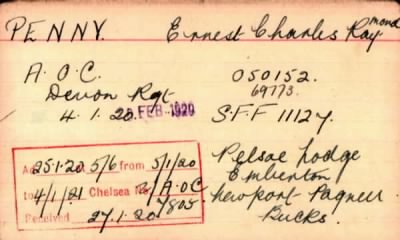 PENNY. Ernest Charles Raymond
A.O.C. 050152.
Devon Rgt 69773.
4.1.20. FEB 1920 S.F.F 11127.
25.1.20 5/6 from 5/1/20
to 4/1/21 Chelsea No. 2/A.O.C
7805
Received 27.1.20
Pelsoe Lodge
Emberton
Newport Pagnell
Bucks.